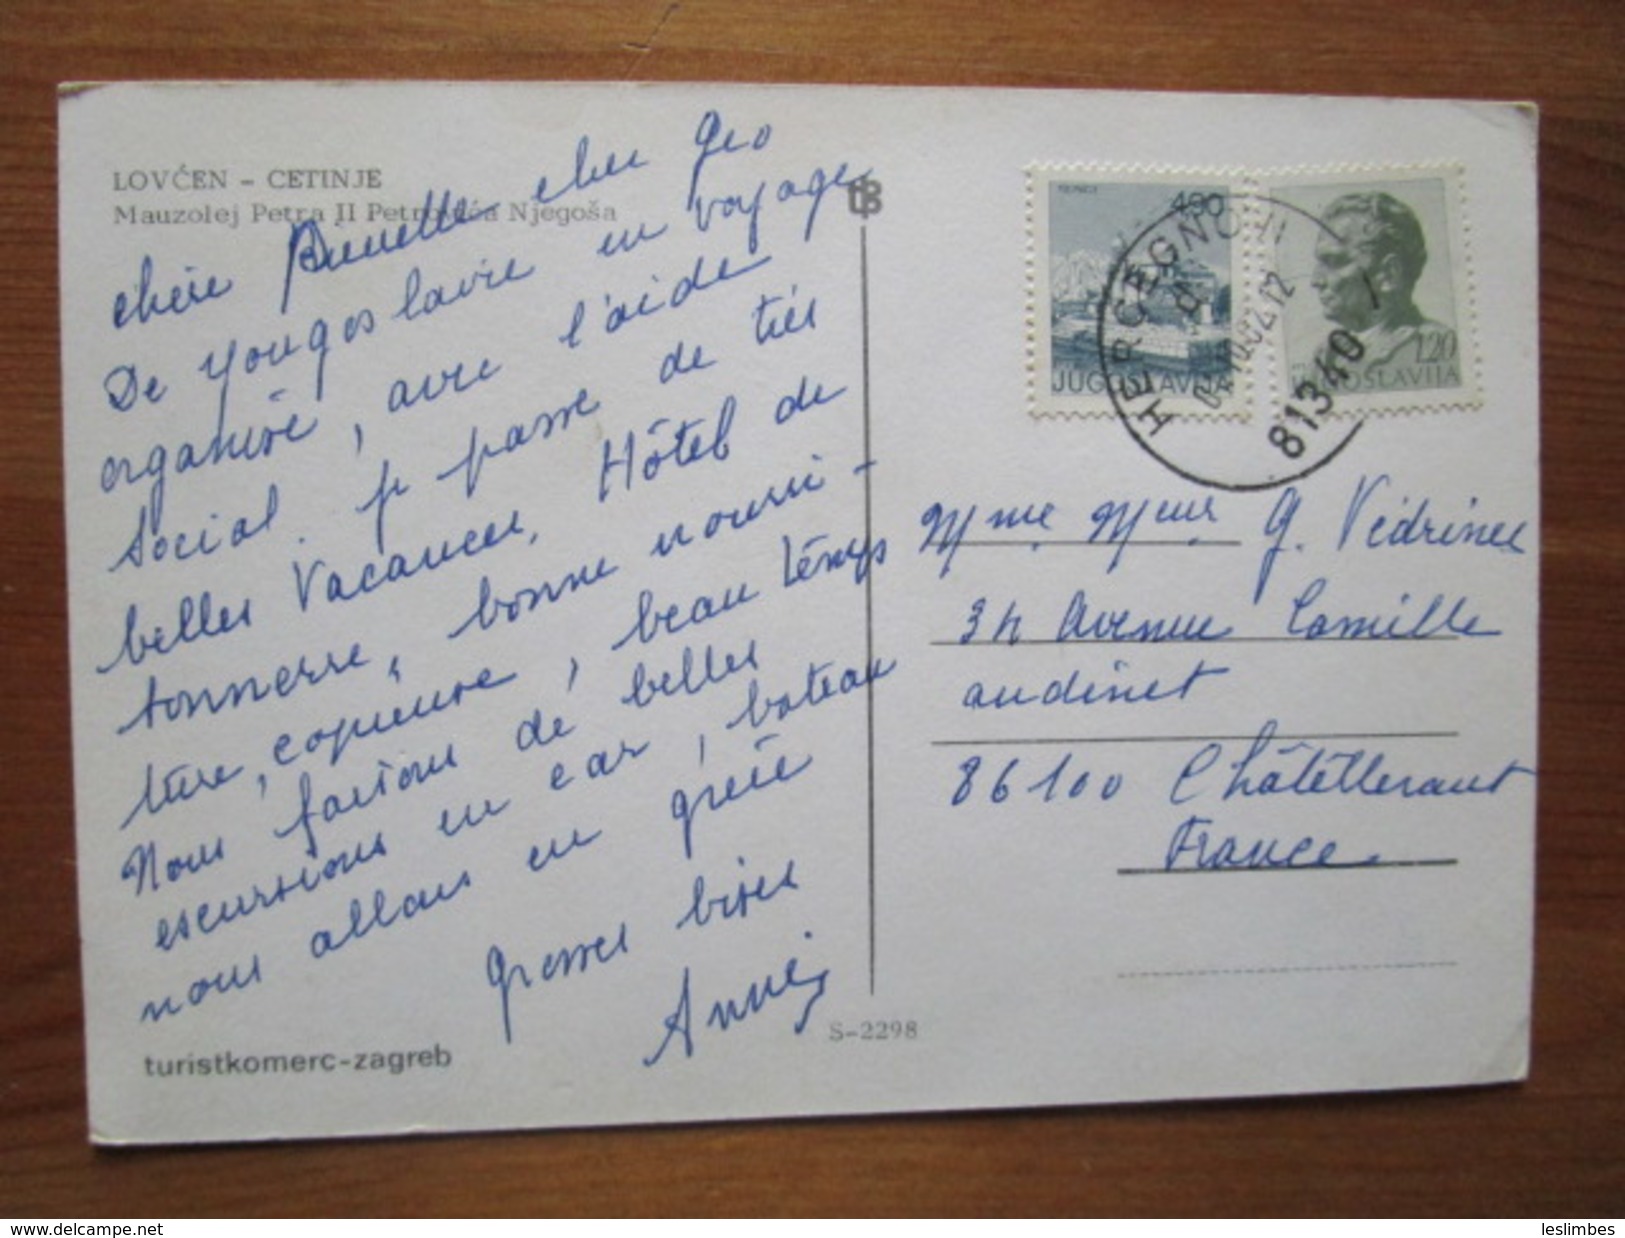 LOVĆEN - CETINJE
Mauzolej Petra II Petrovića Njegoša
chère Brunette cher Géo
De Yougoslavie en voyage
organisé, avec l'aide
Social. je passe de très
belles Vacances, Hôtel de
tonnerre, bonne nourri-
ture, copieuse, beau temps
Nous faisons de belles
escursions en car, bateau
nous allons en grèce
Grosses bises
Annie
turistkomerc-zagreb
S-2298
4,90
JUGOSLAVIJA
1.20
JUGOSLAVIJA
HERCEGNOVI
.10.82.12
81340
Mme Meur G. Védrines
34 Avenue Camille
audinet
86100 Châtelleraut
France
www.delcampe.net
leslimbes